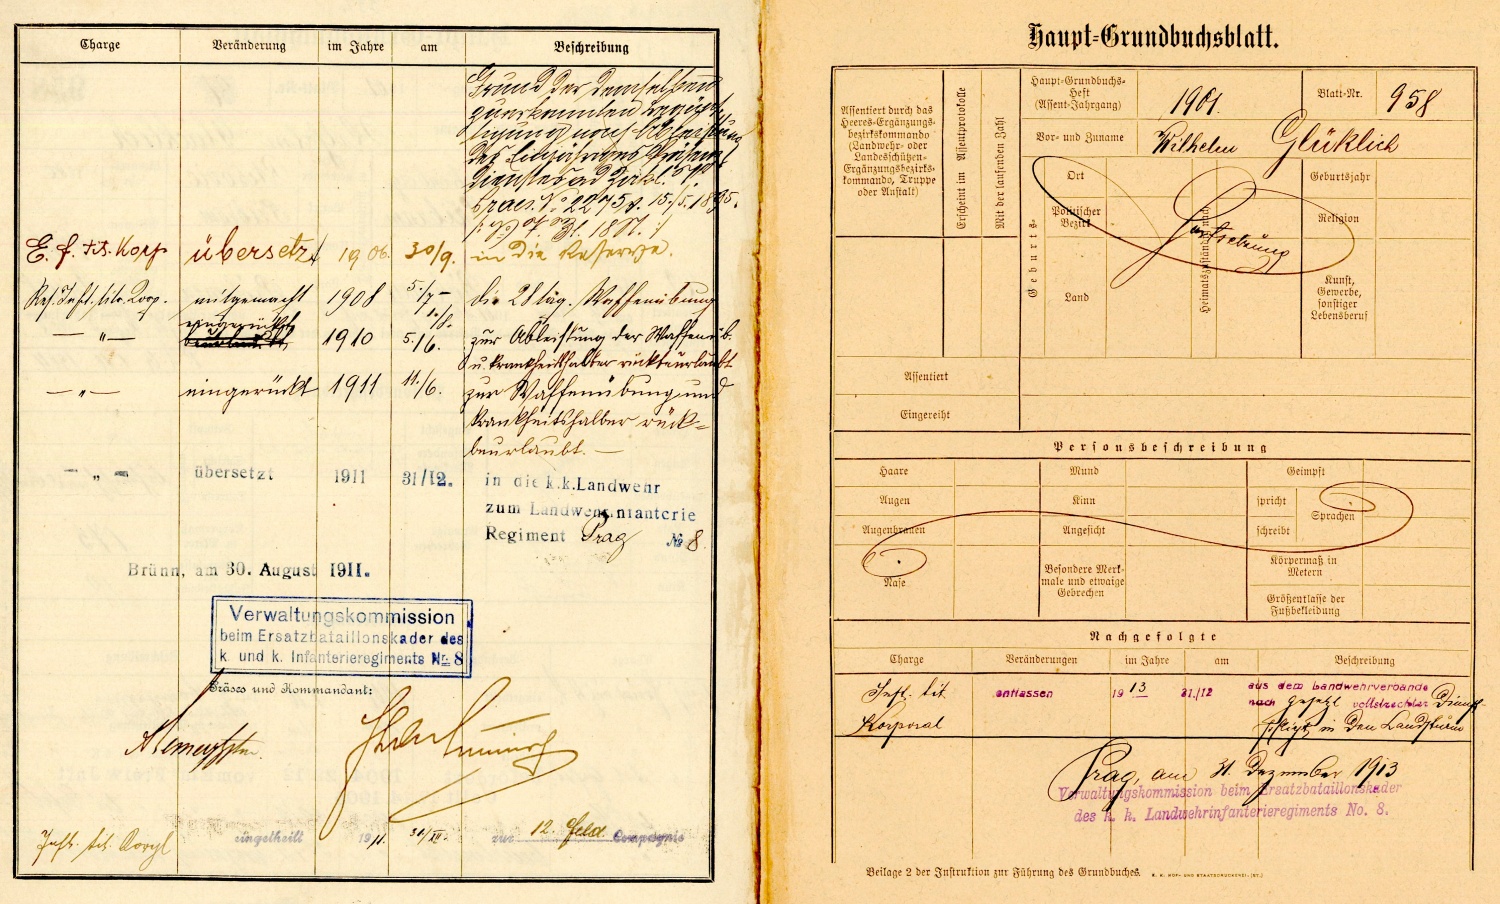 Charge Veränderung im Jahre am Beschreibung
Grund der demselben
zuerkannten Begünst-
igung nach Ableistung
des Einjährigen Präsenz-
dienstes ad Zirkl.
Praes. No 2275 v. 15./5. 1895.
E. f. tit. Korp übersetzt 1906 30/9. in die Reserve.
Res. Inft. tit. Korp. mitgemacht 1908 5./7 – 1./8. die 28 täg. Waffenübung
— " — eingerückt 1910 5./6. zur Ableistung der Waffenüb.
u. krankheitshalber rückbeurlaubt
— " — eingerückt 1911 11./6. zur Waffenübung und
krankheitshalber rück-
beurlaubt. —
— " — übersetzt 1911 31/12. in die k.k. Landwehr
zum Landwehrinfanterie
Regiment Prag № 8.
Brünn, am 30. August 1911.
Verwaltungskommission
beim Ersatzbataillonskader des
k. und k. Infanterieregiments Nr. 8
Präses und Kommandant:
Inft. tit. Korpl eingeteilt 1911 31/XII. zur 12. Feld Compagnie
Haupt-Grundbuchsblatt.
Assentiert durch das
Heeres-Ergänzungs-
bezirkskommando
(Landwehr- oder
Landesschützen-
Ergänzungsbezirks-
kommando, Truppe
oder Anstalt)
Erscheint im Assentprotokolle
Mit der laufenden Zahl
Haupt-Grundbuchs-
Heft
(Assent-Jahrgang)
1901.
Blatt-Nr. 958
Vor- und Zuname Wilhelm Glüklich
Geburts-
Ort
Politischer
Bezirk
Land
Heimatszuständigkeit
Fortsetzung
Geburtsjahr
Religion
Kunst,
Gewerbe,
sonstiger
Lebensberuf
Assentiert
Eingereiht
Personsbeschreibung
Haare Mund Geimpft
Augen Kinn spricht Sprachen
Augenbrauen Angesicht schreibt
Nase
Besondere Merk-
male und etwaige
Gebrechen
Körpermaß in
Metern
Größenklasse der
Fußbekleidung
Nachgefolgte
Charge Veränderungen im Jahre am Beschreibung
Inft. tit. Korporal entlassen 1913 31./12 aus dem Landwehrverbande
nach gesetzl vollstreckter Dienst-
pfligt in den Landsturm
Prag, am 31. Dezember 1913
Verwaltungskommission beim Ersatzbataillonskader
des k. k. Landwehrinfanterieregiments No. 8.
Beilage 2 der Instruktion zur Führung des Grundbuches. K. K. HOF- UND STAATSDRUCKEREI. (ST.)